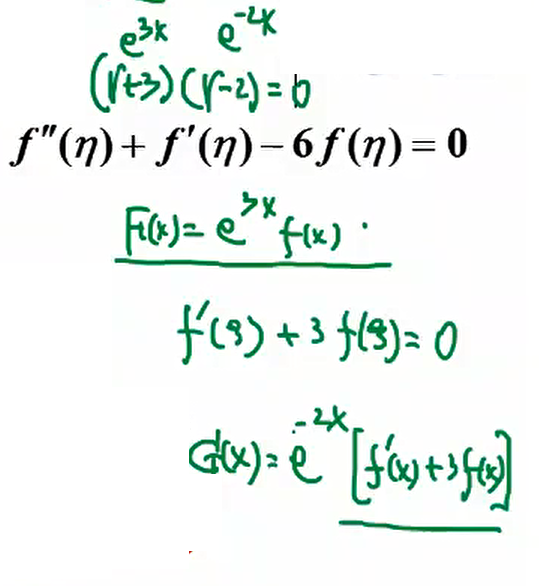 e^{3x} e^{-2x}
(r+3)(r-2)=0
f″(η)+f′(η)−6f(η)=0
F(x)=e^{3x}f(x).
f′(ξ)+3f(ξ)=0
G(x)=e^{-2x}[f′(x)+3f(x)]